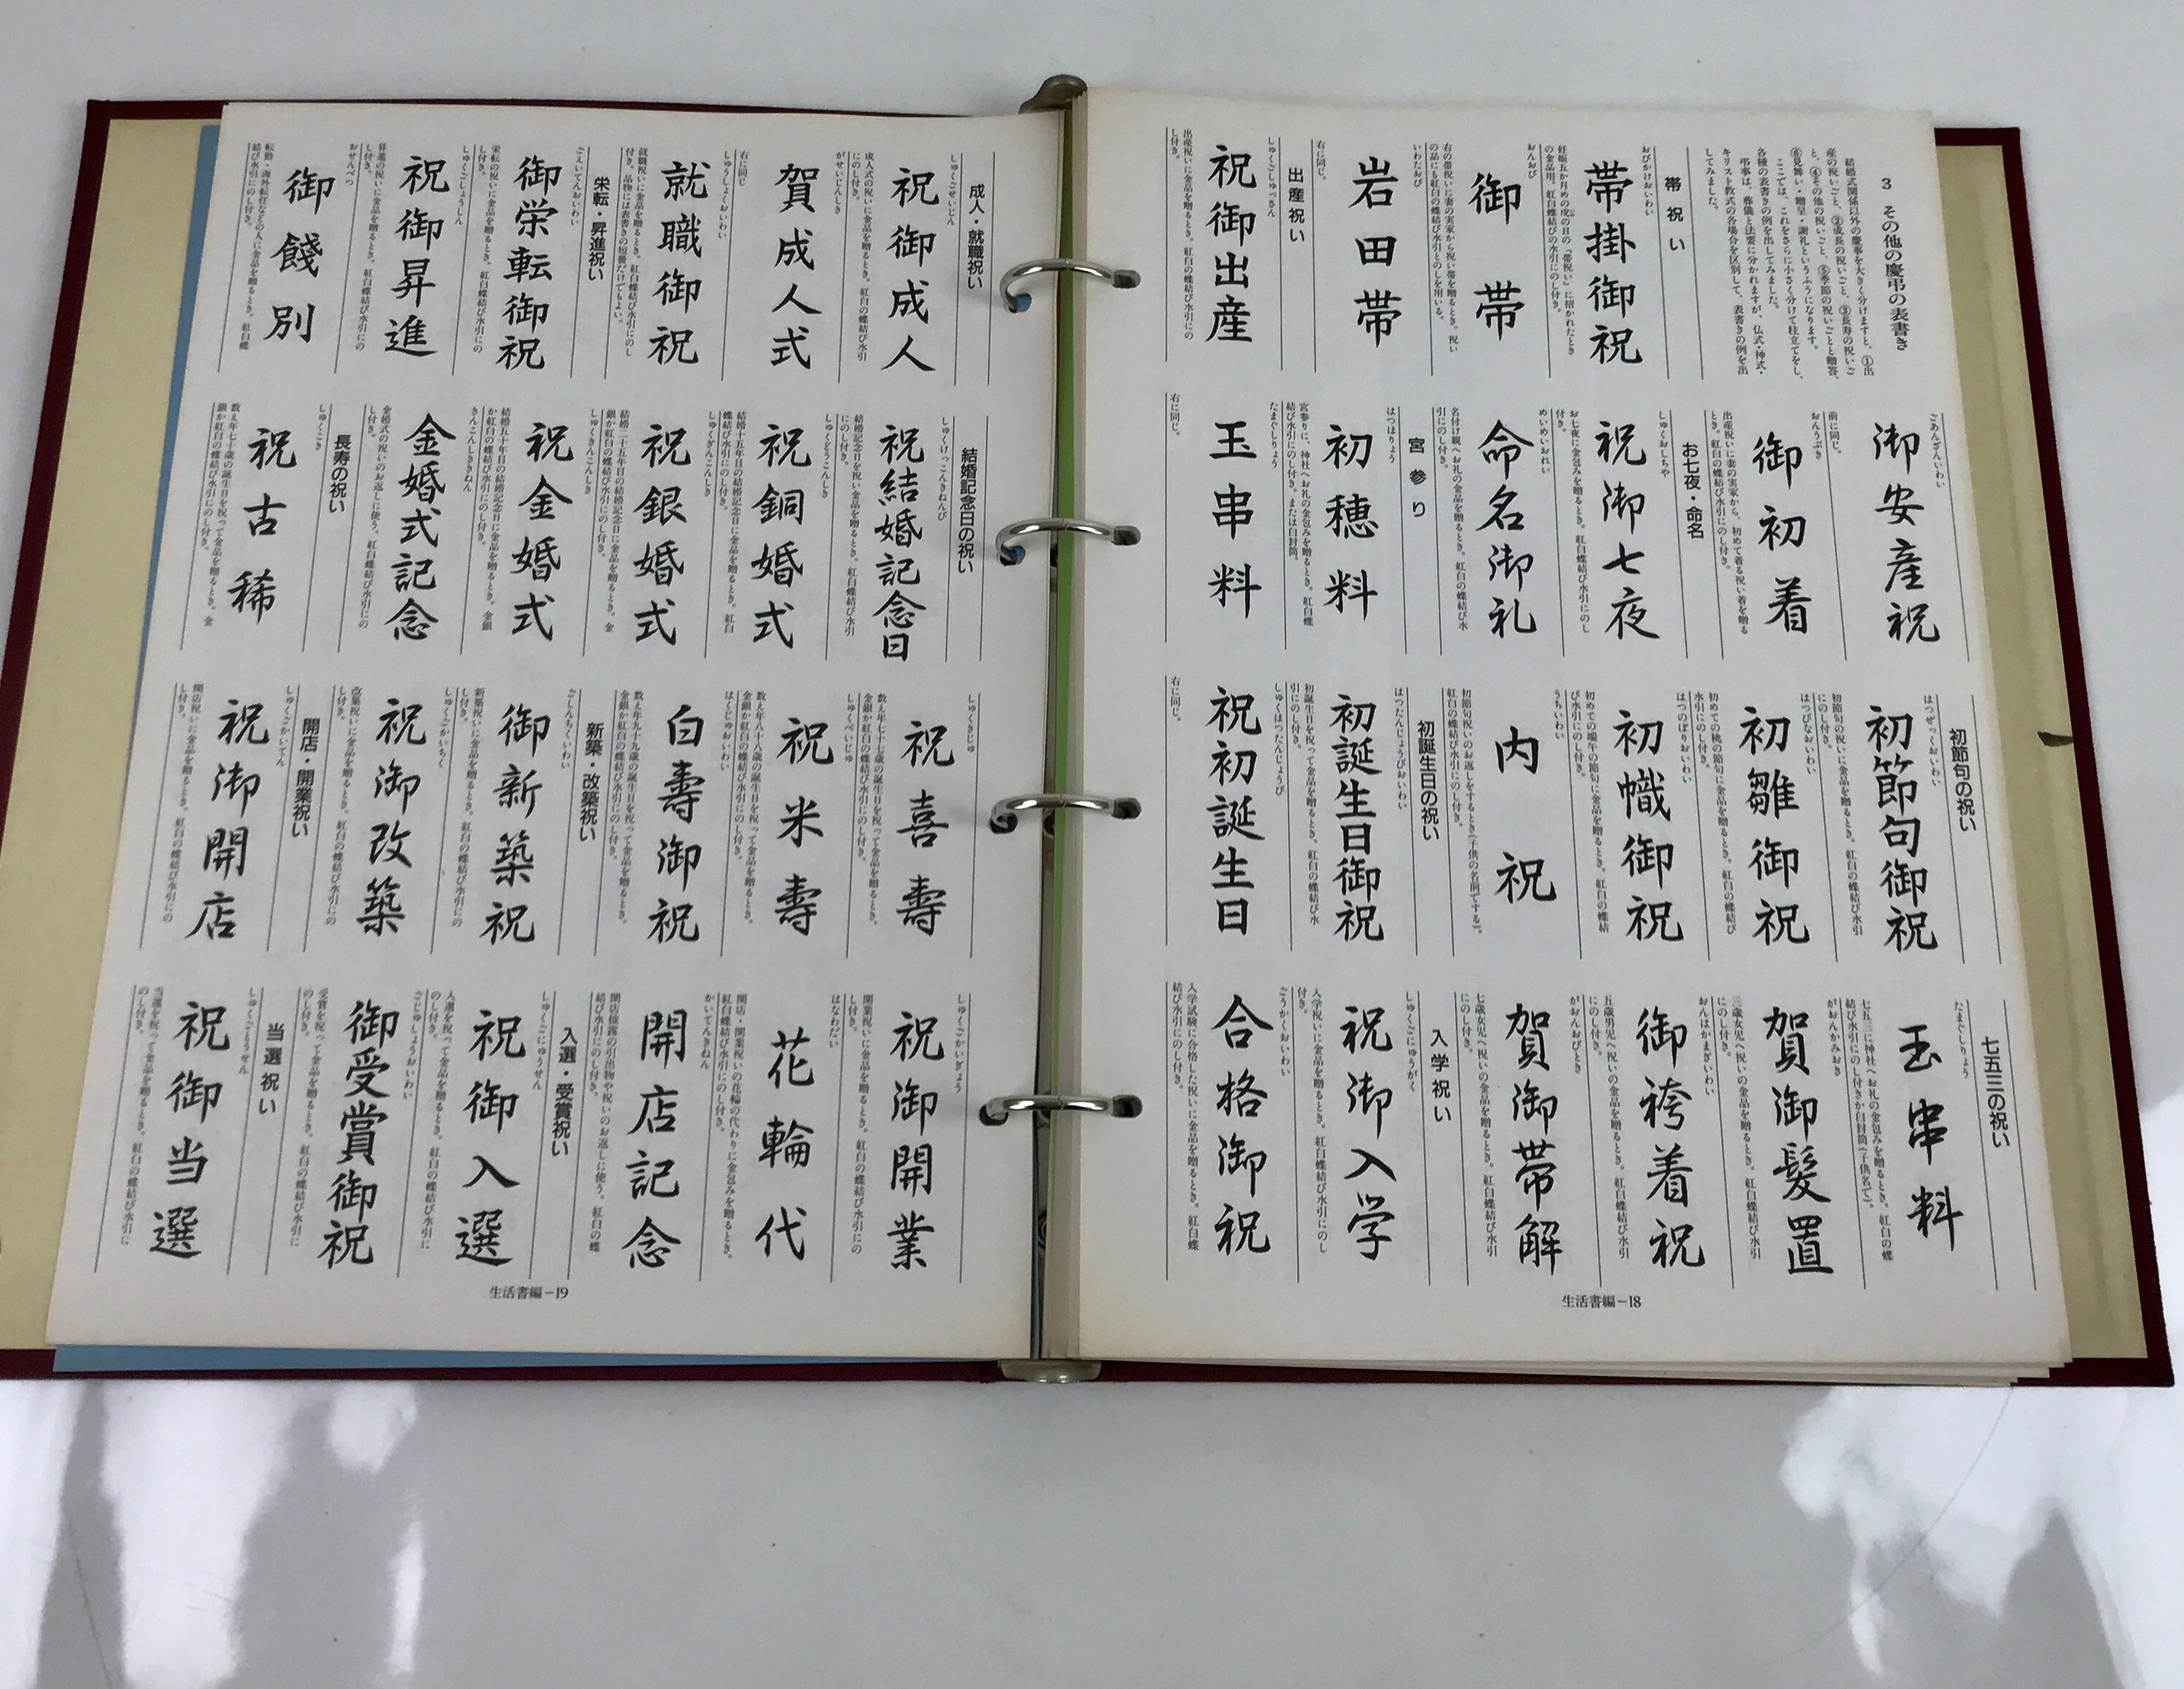 3 その他の慶弔の表書き
結婚式関係以外の慶事を大きく分けますと、①出
産の祝いごと、②成長の祝いごと、③長寿の祝いご
と、④その他の祝いごと、⑤季節の祝いごとと贈答、
⑥見舞い・贈呈・謝礼というふうになります。
ここでは、これをさらに小さく分けて柱立てをし、
各種の表書きの例を出してみました。
弔事は、葬儀と法要に分かれますが、仏式・神式・
キリスト教式の各場合を区別して、表書きの例を出
してみました。
帯祝い
おびかけおいわい
帯掛御祝
妊娠五か月めの戌の日の「帯祝い」に招かれたとき
の金品用。紅白蝶結びの水引にのし付き。
おんおび
御帯
右の帯祝いに妻の実家から祝い帯を贈るとき。祝い
の品にも紅白の蝶結び水引とのしを用いる。
いわたおび
岩田帯
右に同じ。
出産祝い
しゅくごしゅっさん
祝御出産
出産祝いに金品を贈るとき。紅白の蝶結び水引にの
し付き。
ごあんざんいわい
御安産祝
前に同じ。
おんうぶぎ
御初着
出産祝いに妻の実家から、初めて着る祝い着を贈る
とき。紅白の蝶結び水引にのし付き。
お七夜・命名
しゅくおしちや
祝御七夜
お七夜に金包みを贈るとき。紅白蝶結び水引にのし
付き。
めいめいおれい
命名御礼
名付け親へお礼の金品を贈るとき。紅白の蝶結び水
引にのし付き。
宮参り
はつほりょう
初穂料
宮参りに、神社へお礼の金包みを贈るとき。紅白蝶
結び水引にのし付き。または白封筒。
たまぐしりょう
玉串料
右に同じ。
初節句の祝い
はつぜっくおいわい
初節句御祝
初節句の祝いに金品を贈るとき。紅白の蝶結び水引
にのし付き。
はつびなおいわい
初雛御祝
初めての桃の節句に金品を贈るとき。紅白の蝶結び
水引にのし付き。
はつのぼりおいわい
初幟御祝
初めての端午の節句に金品を贈るとき。紅白の蝶結
び水引にのし付き。
うちいわい
内祝
初節句祝いのお返しをするとき(子供の名前でする)。
紅白の蝶結び水引にのし付き。
初誕生日の祝い
はつたんじょうびおいわい
初誕生日御祝
初誕生日を祝って金品を贈るとき。紅白の蝶結び水
引にのし付き。
しゅくはつたんじょうび
祝初誕生日
右に同じ。
七五三の祝い
たまぐしりょう
玉串料
七五三に神社へお礼の金包みを贈るとき。紅白の蝶
結び水引にのし付きか白封筒(子供名で)。
がおんかみおき
賀御髪置
三歳女児へ祝いの金品を贈るとき。紅白蝶結び水引
にのし付き。
おんはかまぎいわい
御袴着祝
五歳男児へ祝いの金品を贈るとき。紅白蝶結び水引
にのし付き。
がおんおびとき
賀御帯解
七歳女児へ祝いの金品を贈るとき。紅白蝶結び水引
にのし付き。
入学祝い
しゅくごにゅうがく
祝御入学
入学祝いに金品を贈るとき。紅白蝶結び水引にのし
付き。
ごうかくおいわい
合格御祝
入学試験に合格した祝いに金品を贈るとき。紅白蝶
結び水引にのし付き。
生活書編―18
成人・就職祝い
しゅくごせいじん
祝御成人
成人式の祝いに金品を贈るとき。紅白の蝶結び水引
にのし付き。
がせいじんしき
賀成人式
右に同じ
しゅうしょくおいわい
就職御祝
就職祝いに金品を贈るとき。紅白蝶結び水引にのし
付き。品物には表書きの短冊だけでもよい。
栄転・昇進祝い
ごえいてんおいわい
御栄転御祝
栄転の祝いに金品を贈るとき。紅白蝶結び水引にの
し付き。
しゅくごしょうしん
祝御昇進
昇進の祝いに金品を贈るとき。紅白蝶結び水引にの
し付き。
おせんべつ
御餞別
転勤・海外転任などの人に金品を贈るとき。紅白蝶
結び水引にのし付き。
結婚記念日の祝い
しゅくけっこんきねんび
祝結婚記念日
結婚記念日を祝い金品を贈るとき。紅白蝶結び水引
にのし付き。
しゅくどうこんしき
祝銅婚式
結婚十五年目の結婚記念日に金品を贈るとき。紅白
蝶結び水引にのし付き。
しゅくぎんこんしき
祝銀婚式
結婚二十五年目の結婚記念日に金品を贈るとき。金
銀か紅白の蝶結び水引にのし付き。
しゅくきんこんしき
祝金婚式
結婚五十年目の結婚記念日に金品を贈るとき。金銀
か紅白の蝶結び水引にのし付き。
きんこんしききねん
金婚式記念
金婚式の祝いのお返しに使う。紅白蝶結び水引にの
し付き。
長寿の祝い
しゅくこき
祝古稀
数え年七十歳の誕生日を祝って金品を贈るとき。金
銀か紅白の蝶結び水引にのし付き。
しゅくきじゅ
祝喜壽
数え年七十七歳の誕生日を祝って金品を贈るとき。
金銀か紅白の蝶結び水引にのし付き。
しゅくべいじゅ
祝米壽
数え年八十八歳の誕生日を祝って金品を贈るとき。
金銀か紅白の蝶結び水引にのし付き。
はくじゅおいわい
白壽御祝
数え年九十九歳の誕生日を祝って金品を贈るとき。
金銀か紅白の蝶結び水引にのし付き。
新築・改築祝い
ごしんちくいわい
御新築祝
新築祝いに金品を贈るとき。紅白の蝶結び水引にの
し付き。
しゅくごかいちく
祝御改築
改築祝いに金品を贈るとき。紅白の蝶結び水引にの
し付き。
開店・開業祝い
しゅくごかいてん
祝御開店
開店祝いに金品を贈るとき。紅白の蝶結び水引にの
し付き。
しゅくごかいぎょう
祝御開業
開業祝いに金品を贈るとき。紅白の蝶結び水引にの
し付き。
はなわだい
花輪代
開店・開業祝いの花輪の代わりに金包みを贈るとき。
紅白蝶結び水引にのし付き。
かいてんきねん
開店記念
開店披露の引出物や祝いのお返しに使う。紅白の蝶
結び水引にのし付き。
入選・受賞祝い
しゅくごにゅうせん
祝御入選
入選を祝って金品を贈るとき。紅白の蝶結び水引に
のし付き。
ごじゅしょうおいわい
御受賞御祝
受賞を祝って金品を贈るとき。紅白の蝶結び水引に
のし付き。
当選祝い
しゅくごとうせん
祝御当選
当選を祝って金品を贈るとき。紅白の蝶結び水引に
のし付き。
生活書編―19